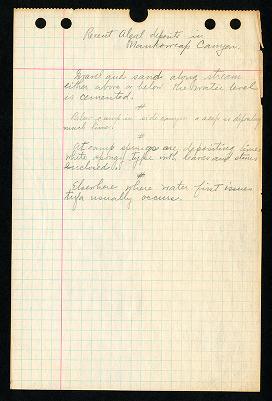 Recent Algal deposits in
Nankoweap Canyon.
Gravel and sand along stream
either above or below the water level
is cemented.
#
Below camp in side canyon a seep is depositing
much lime.
#
At camp springs are depositing lime
white spongy type with leaves and stones
enclosed.
#
Elsewhere where water first issues
tufa usually occurs.